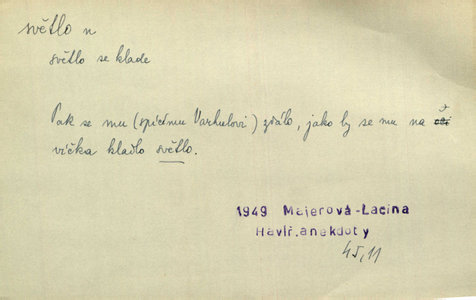 světlo n
světlo se klade
Pak se mu (spícímu Varhulovi) zdálo, jako by se mu na
víčka kladlo světlo.
1949 Majerová-Lacina
Havíř.anekdoty
45,11